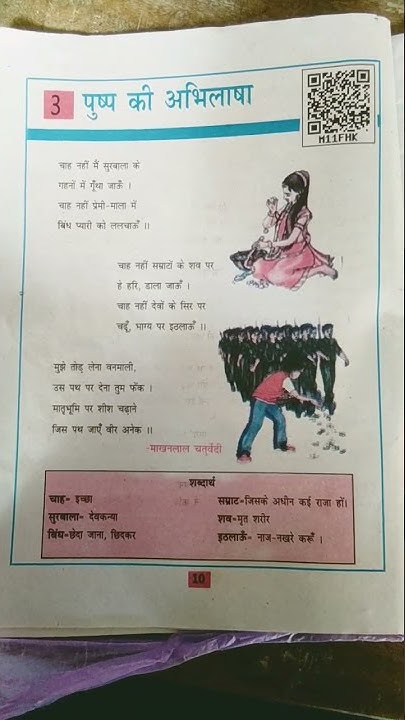 3 पुष्प की अभिलाषा
M11FHK
चाह नहीं मैं सुरबाला के
गहनों में गूँथा जाऊँ ।
चाह नहीं प्रेमी-माला में
बिंध प्यारी को ललचाऊँ ।।
चाह नहीं सम्राटों के शव पर
हे हरि, डाला जाऊँ ।
चाह नहीं देवों के सिर पर
चढ़ूँ, भाग्य पर इठलाऊँ ।।
मुझे तोड़ लेना वनमाली,
उस पथ पर देना तुम फेंक ।
मातृभूमि पर शीश चढ़ाने
जिस पथ जाएँ वीर अनेक ।।
-माखनलाल चतुर्वेदी
शब्दार्थ
चाह= इच्छा
सुरबाला= देवकन्या
बिंध=छेदा जाना, छिदकर
सम्राट=जिसके अधीन कई राजा हों।
शव=मृत शरीर
इठलाऊँ= नाज-नखरे करूँ ।
10